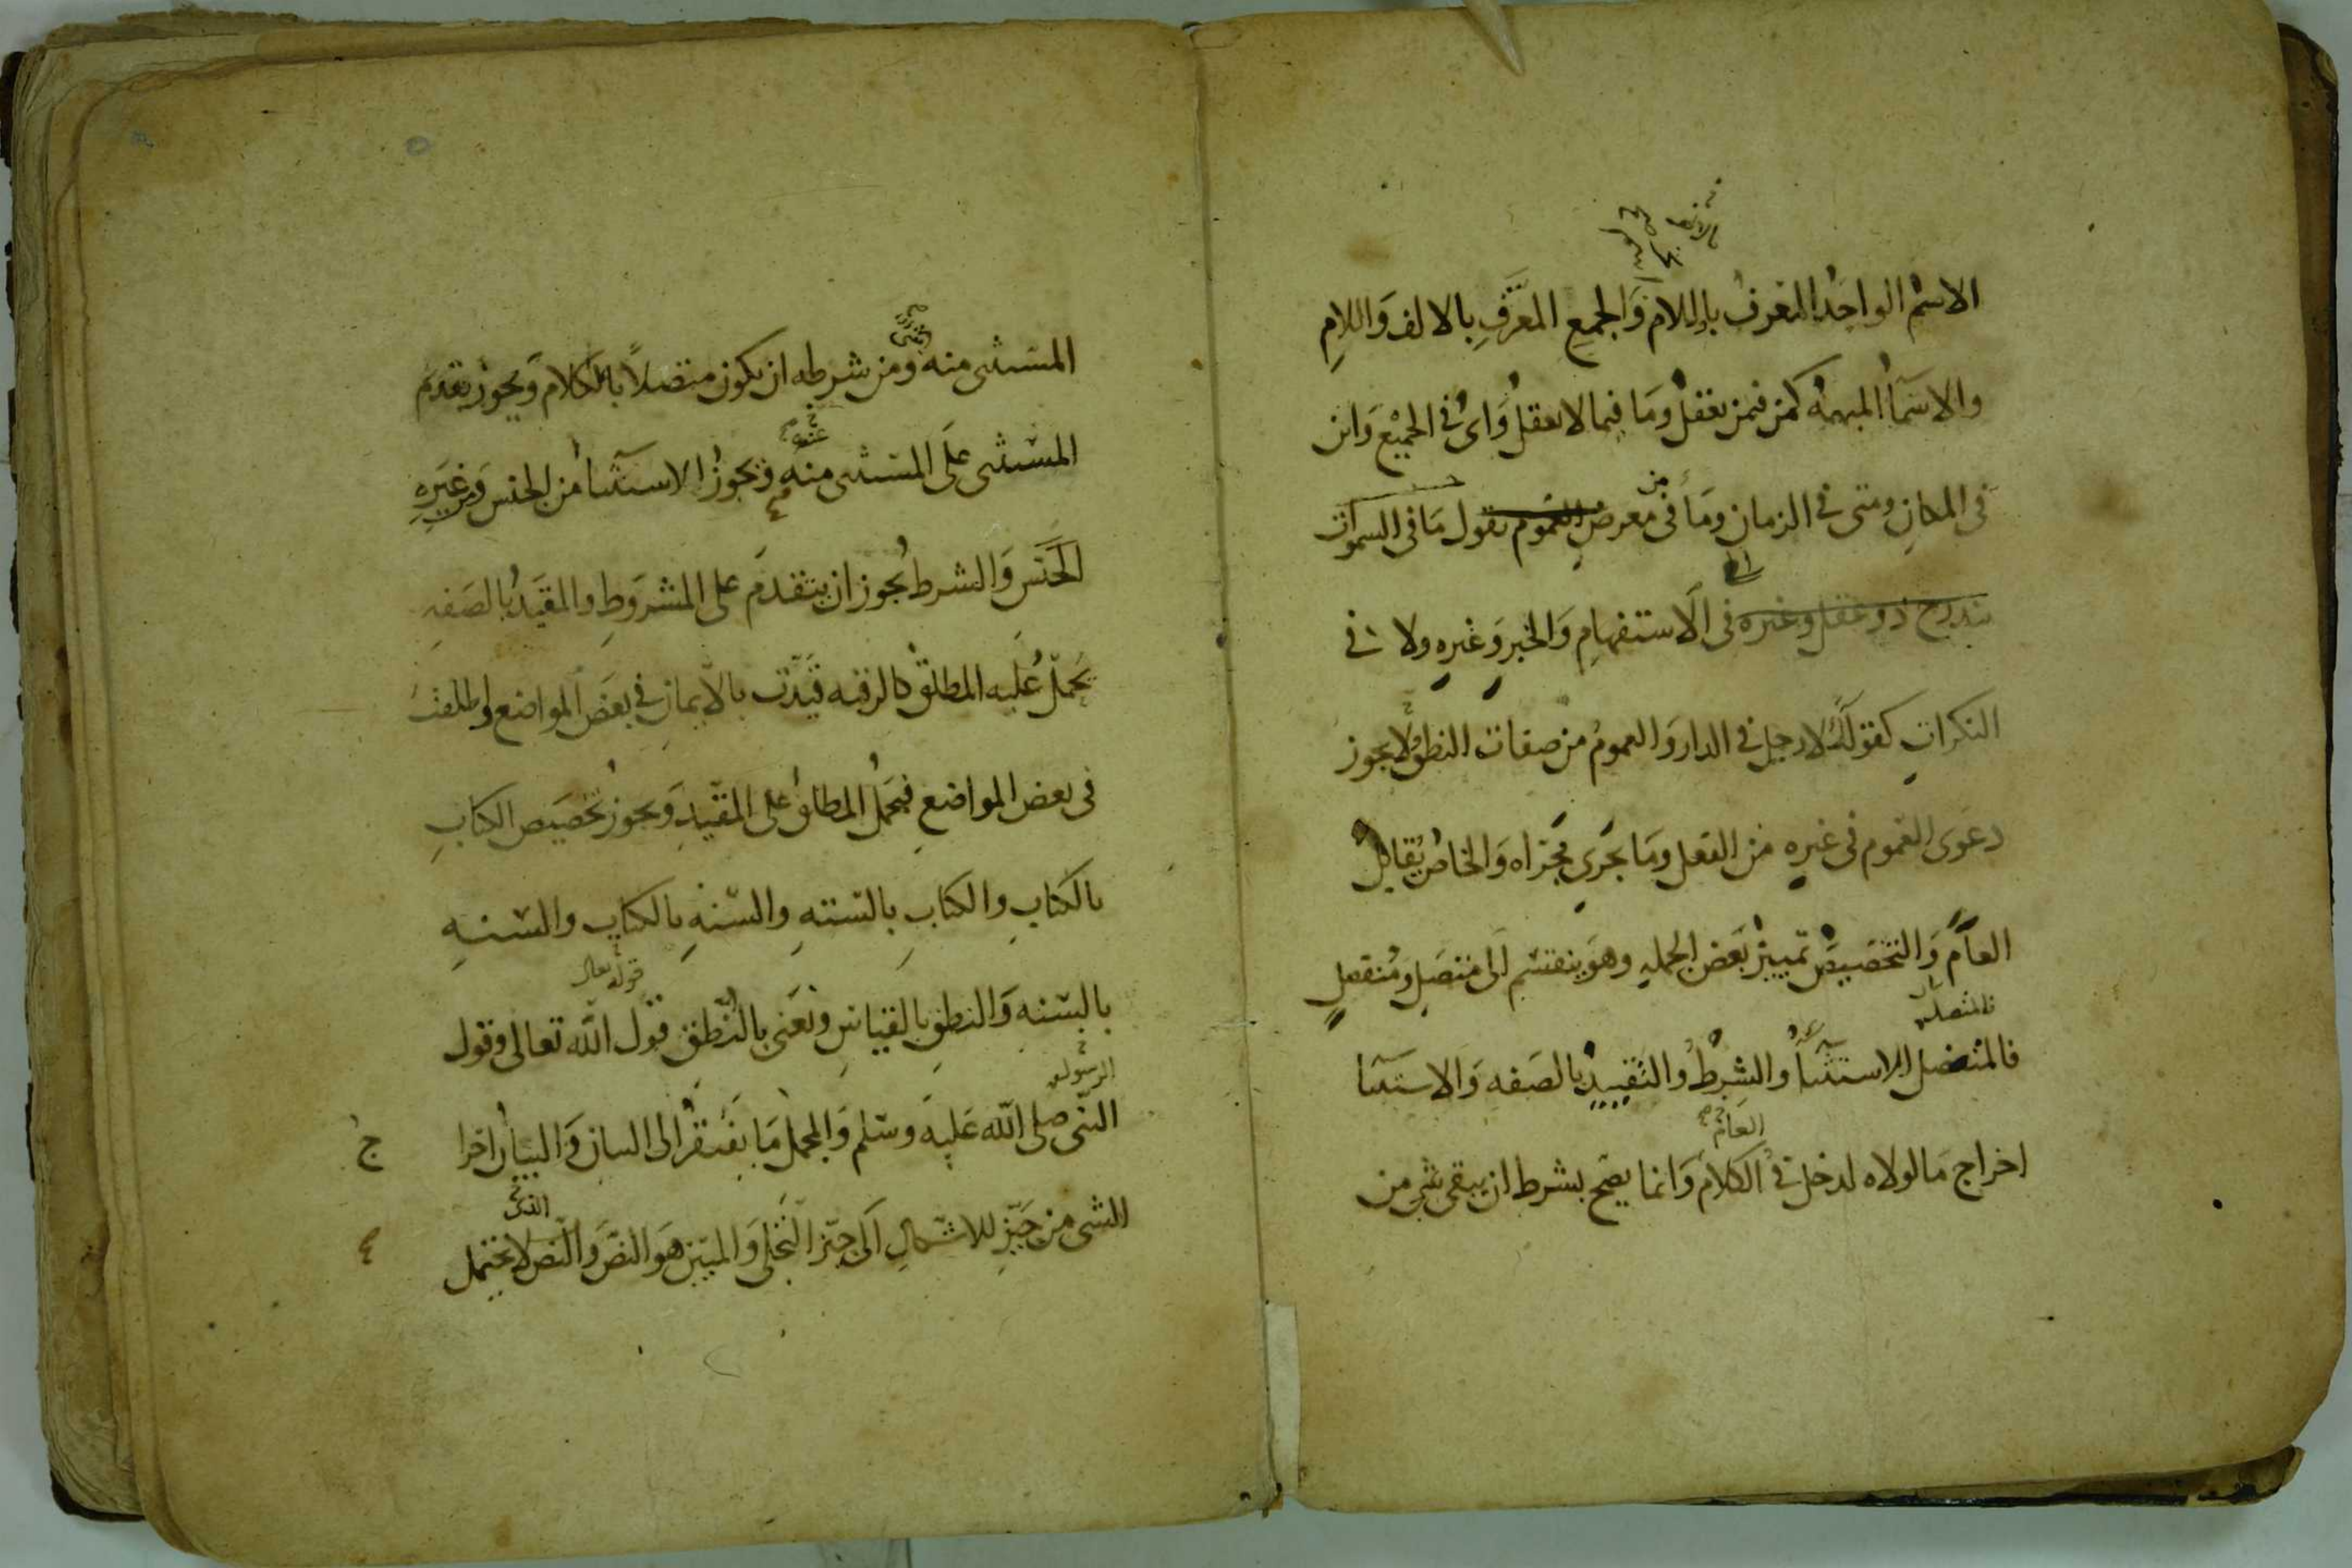 الاسم الواحد المعرف باللام والجمع المعرف بالالف واللام
والاسماء المبهمة كمن فيمن يعقل وما فيما لا يعقل واى في الجميع واين
فى المكان ومتى في الزمان وما فى معرض العموم تقول ما فى السموات
يندرج ذو عقل وغيره فى الاستفهام والخبر وغيره ولا في
النكرات كقولك لا رجل في الدار والعموم من صفات النطق ولا يجوز
دعوى العموم فى غيره من الفعل وما يجرى مجراه والخاص يقابل
العام والتخصيص تمييز بعض الجملة وهو ينقسم الى متصل ومنفصل
فالمتصل
فالمتصل الاستثناء والشرط والتقييد بالصفه والاستثنا
العام
اخراج ما لولاه لدخل في الكلام وانما يصح بشرط ان يبقى شي من
المستثنى منه ومن شرطه ان يكون متصلاً بالكلام ويجوز تقدم
عنه
المستثنى على المستثنى منه ويجوز الاستثناء من الجنس ومن غيره
الجنس والشرط يجوز ان يتقدم على المشروط والمقيد بالصفه
يحمل عليه المطلق كالرقبه قيدت بالايمان في بعض المواضع واطلقت
فى بعض المواضع فيحمل المطلق على المقيد ويجوز تخصيص الكتاب
بالكتاب والكتاب بالسنه والسنه بالكتاب والسنه
قوله تعالى
بالسنه والنطق بالقياس ونعنى بالنطق قول الله تعالى وقول
الرسول
النبى صلى الله عليه وسلم والمجمل ما يفتقر الى البيان والبيان اخرا ج
الذى
الشى من حيز الاشكال الى حيز التجلى والمبين هو النص والنص لا يحتمل